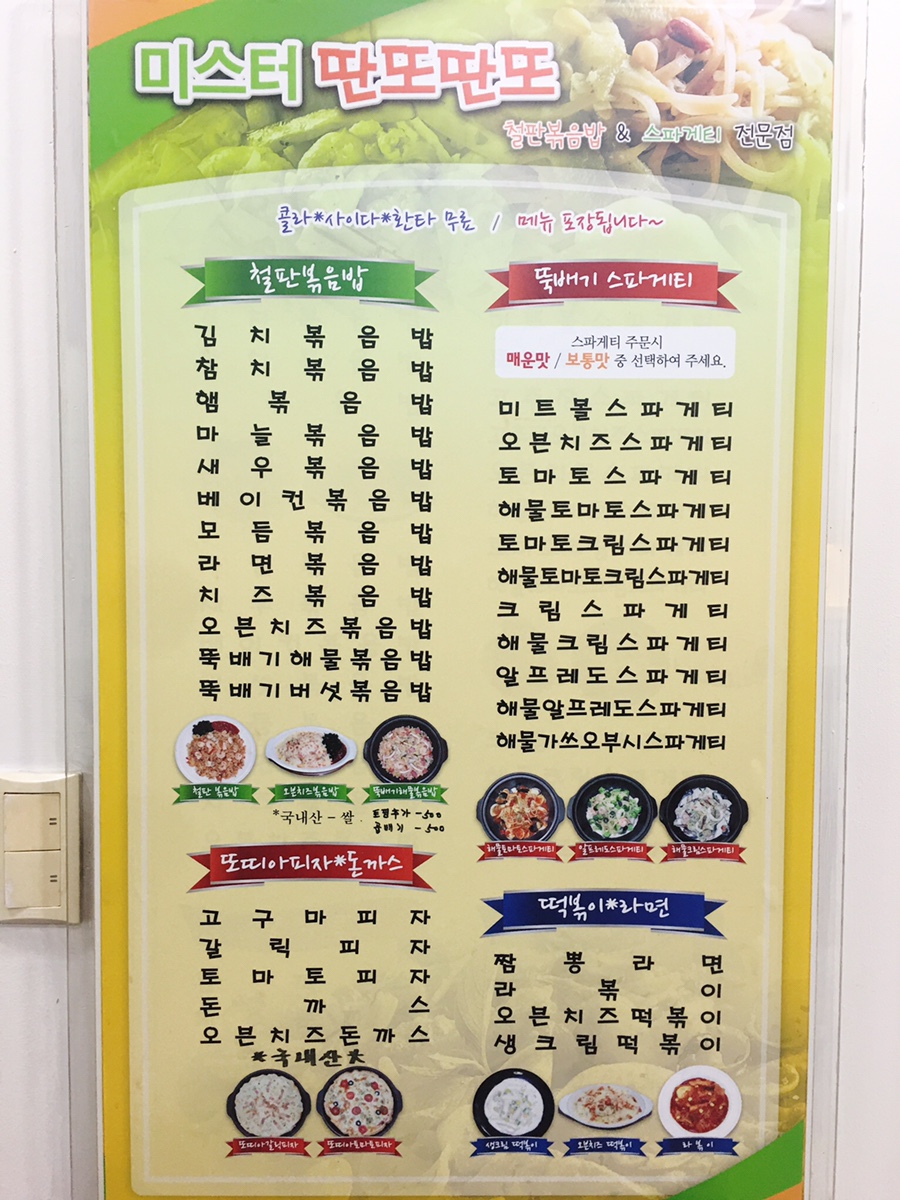 미스터 딴또딴또
철판볶음밥 & 스파게티 전문점
콜라*사이다*환타 무료 / 메뉴 포장됩니다~
철판볶음밥
김치볶음밥
참치볶음밥
햄볶음밥
마늘볶음밥
새우볶음밥
베이컨볶음밥
모듬볶음밥
라면볶음밥
치즈볶음밥
오븐치즈볶음밥
뚝배기해물볶음밥
뚝배기버섯볶음밥
철판 볶음밥
오븐치즈볶음밥
뚝배기해물볶음밥
*국내산 - 쌀
토핑추가 - 500
곱배기 - 500
또띠아피자*돈까스
고구마피자
갈릭피자
토마토피자
돈까스
오븐치즈돈까스
*국내산*
또띠아갈릭피자
또띠아토마토피자
뚝배기 스파게티
스파게티 주문시
매운맛 / 보통맛 중 선택하여 주세요.
미트볼스파게티
오븐치즈스파게티
토마토스파게티
해물토마토스파게티
토마토크림스파게티
해물토마토크림스파게티
크림스파게티
해물크림스파게티
알프레도스파게티
해물알프레도스파게티
해물가쓰오부시스파게티
해물토마토스파게티
알프레도스파게티
해물크림스파게티
떡볶이*라면
짬뽕라면
라볶이
오븐치즈떡볶이
생크림떡볶이
생크림 떡볶이
오븐치즈 떡볶이
라볶이